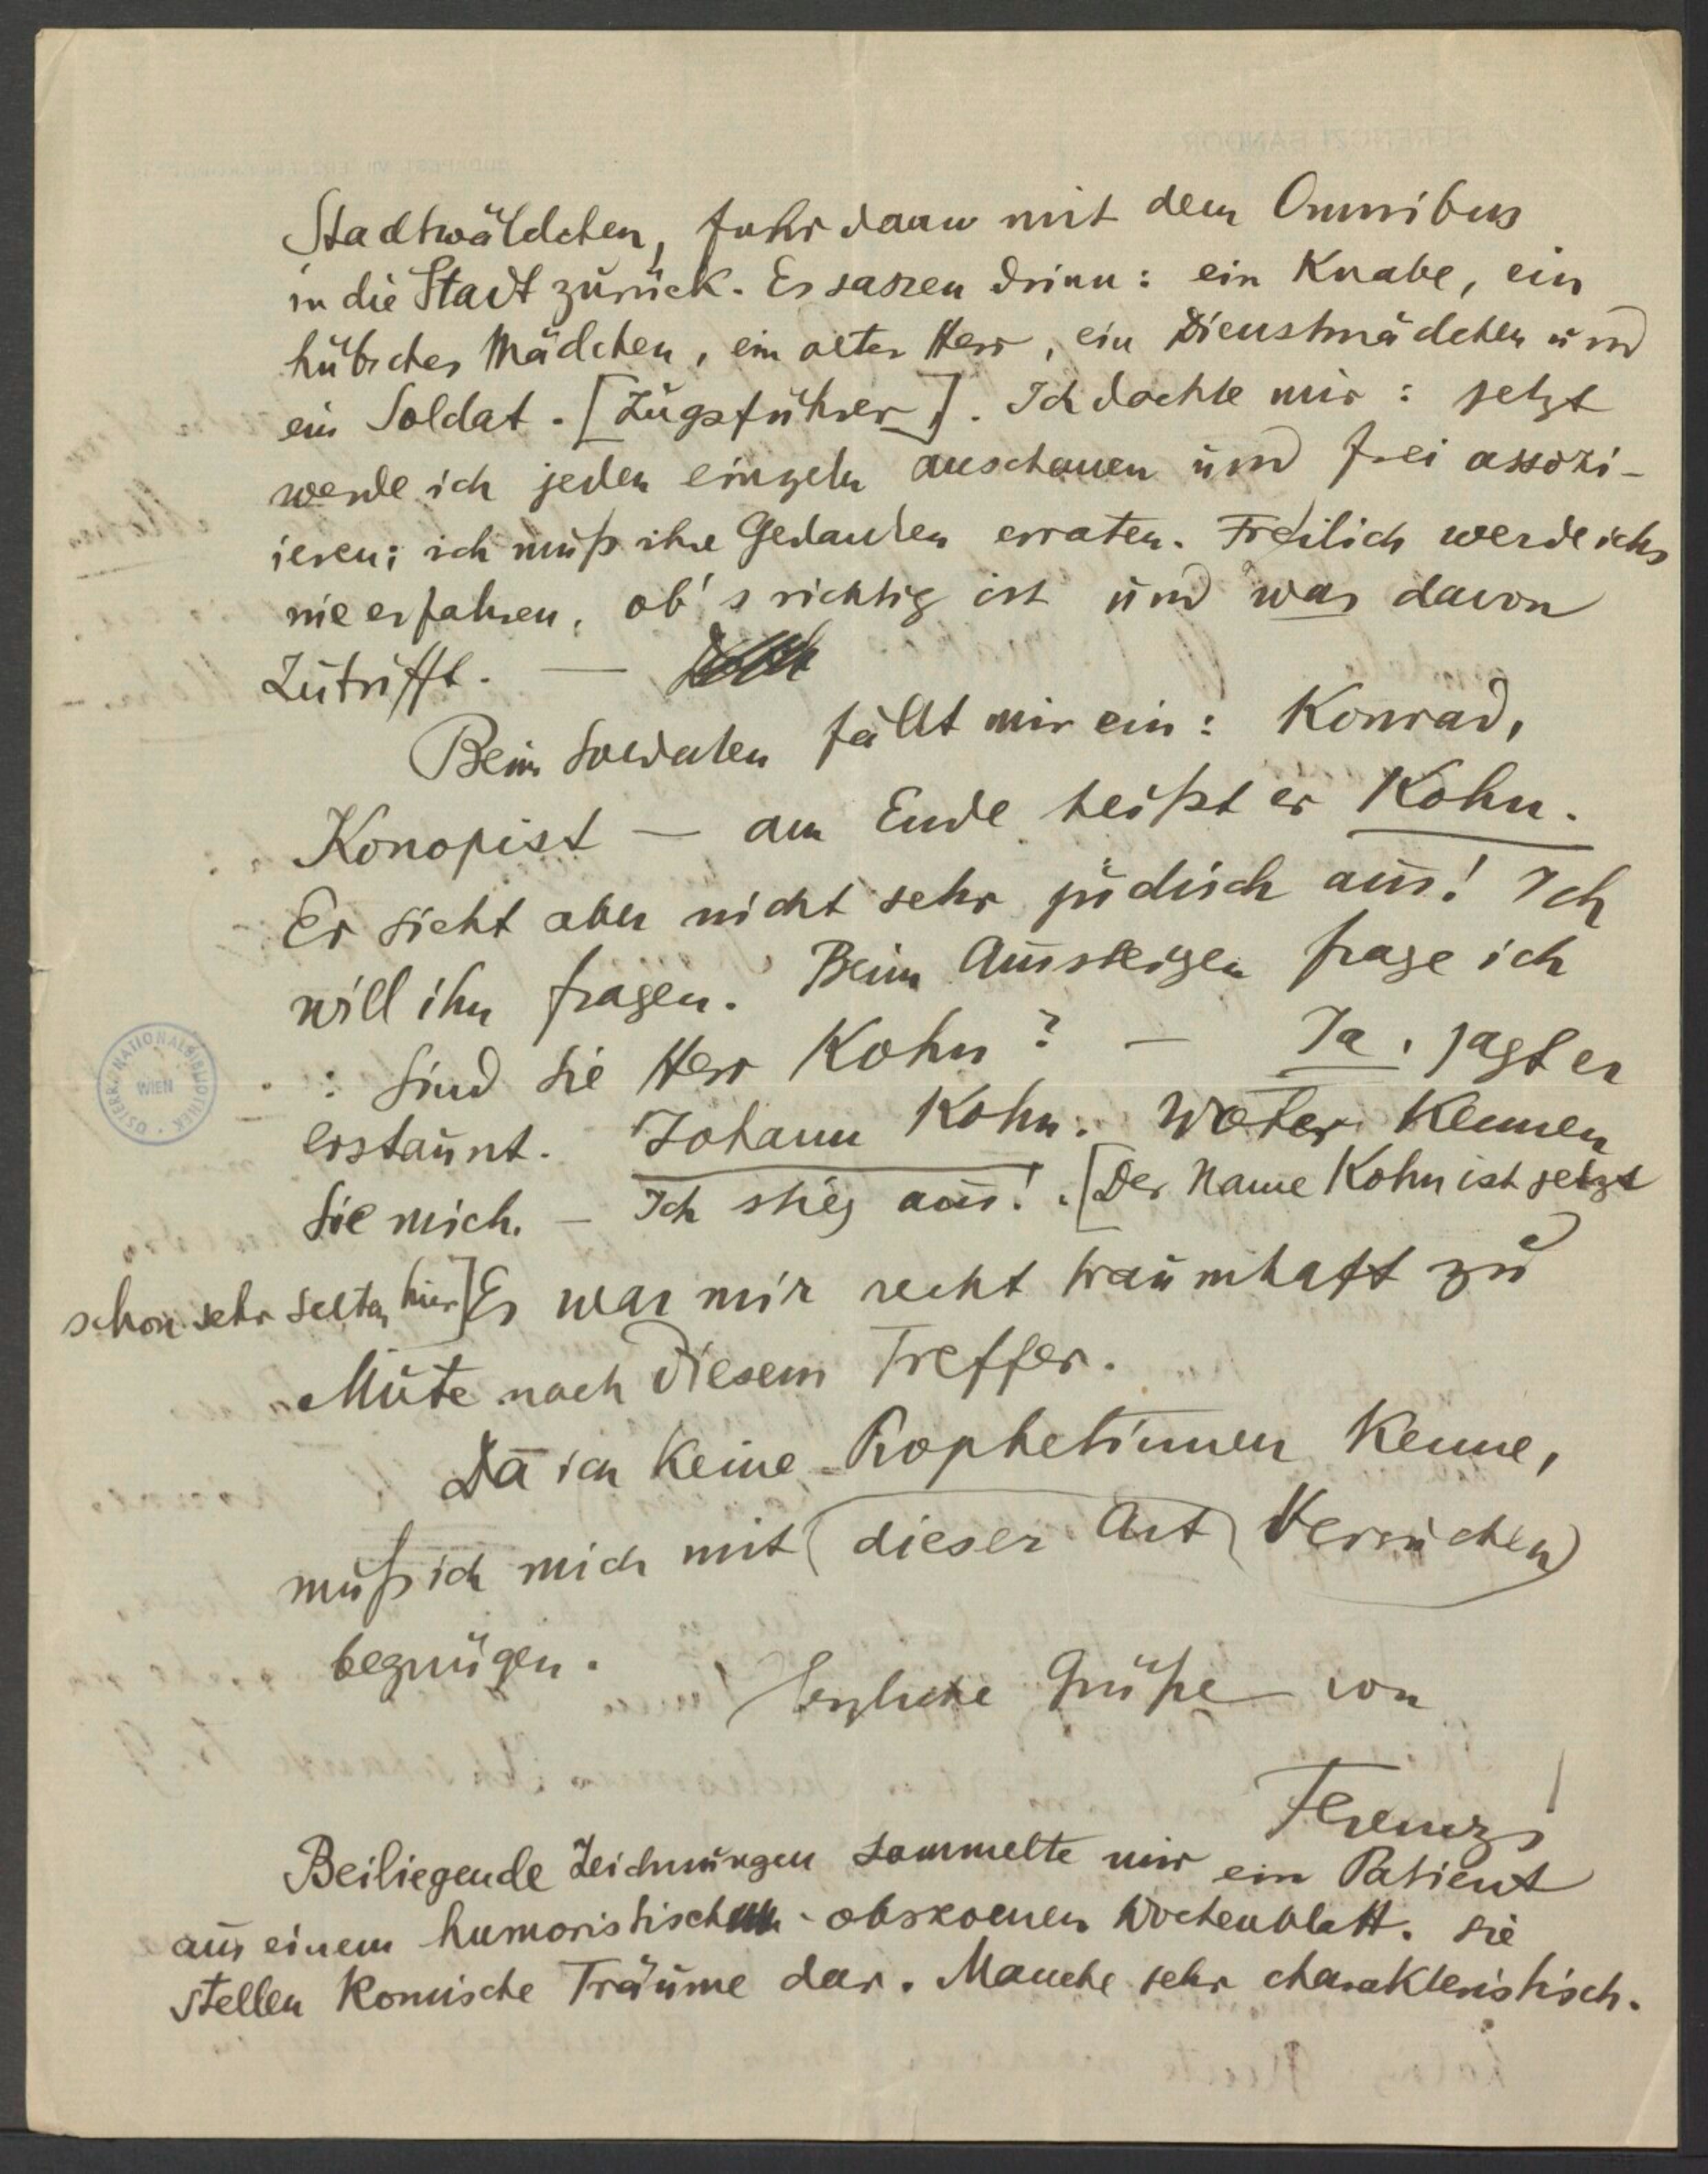 Stadtwäldchen, fuhr dann mit dem Omnibus
in die Stadt zurück. Es saszen drinn: ein Knabe, ein
hübsches Mädchen, ein alter Herr, ein Dienstmädchen und
ein Soldat. [Zugsführer]. Ich dachte mir: jetzt
werde ich jeden einzeln anschauen und frei assozi-
ieren; ich muß ihre Gedanken erraten. Freilich werde ichs
nie erfahren, ob's richtig ist und was davon
zutrifft. —
Beim Soldaten fällt mir ein: Konrad,
Konopist — am Ende heißt er Kohn.
Er sieht aber nicht sehr jüdisch aus! Ich
will ihn fragen. Beim Aussteigen frage ich
: Sind Sie Herr Kohn? — Ja, sagt er
erstaunt. Johann Kohn. Woher kennen
Sie mich. — Ich stieg aus! . [Der Name Kohn ist jetzt
schon sehr selten hier] Es war mir recht traumhaft zu
Mute nach diesem Treffer.
Da ich keine Prophetinnen kenne,
muß ich mich mit dieser Art Versuchen
begnügen.
Herzliche Grüße von
Ferenczi
Beiliegende Zeichnungen sammelte mir ein Patient
aus einem humoristisch - obskoenen Wochenblatt. Sie
stellen komische Träume dar. Manche sehr charakteristisch.
ÖSTERR. NATIONALBIBLIOTHEK
WIEN